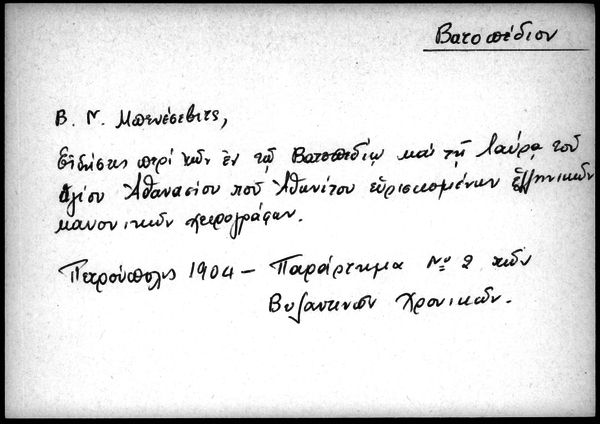 Βατοπέδιον
Β. Ν. Μπενέσεβιτς,
Εἰδήσεις περὶ τῶν ἐν τῷ Βατοπεδίῳ καὶ τῇ Λαύρᾳ τοῦ
ἁγίου Ἀθανασίου τοῦ Ἀθωνίτου εὑρισκομένων ἑλληνικῶν
κανονικῶν χειρογράφων.
Πετρούπολις 1904 – Παράρτημα Νο 2 τῶν
Βυζαντινῶν Χρονικῶν.